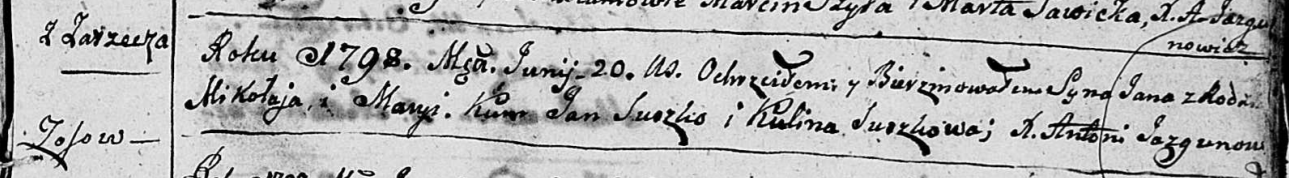 Marcin Szyła i Marta Sawicka, X. A. Jazgu
nowicz
z Zarzecza
Roku 1798. Mca. Junij 20. us. Ochrzciłem y Bierzmowałem Syna Jana z Rodz
Mikołaja i Maryi. Kum Jan Suszko i Kulina Suszkowa; X. Antoni Jazgunow
Zosow